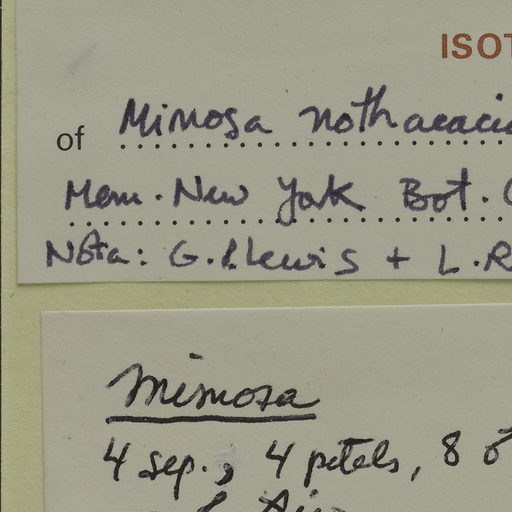 ISOT
of Mimosa nothacacia
Mem. New York Bot.
Nota: G.P. Lewis + L.R
Mimosa
4 sep., 4 petals, 8 ♂